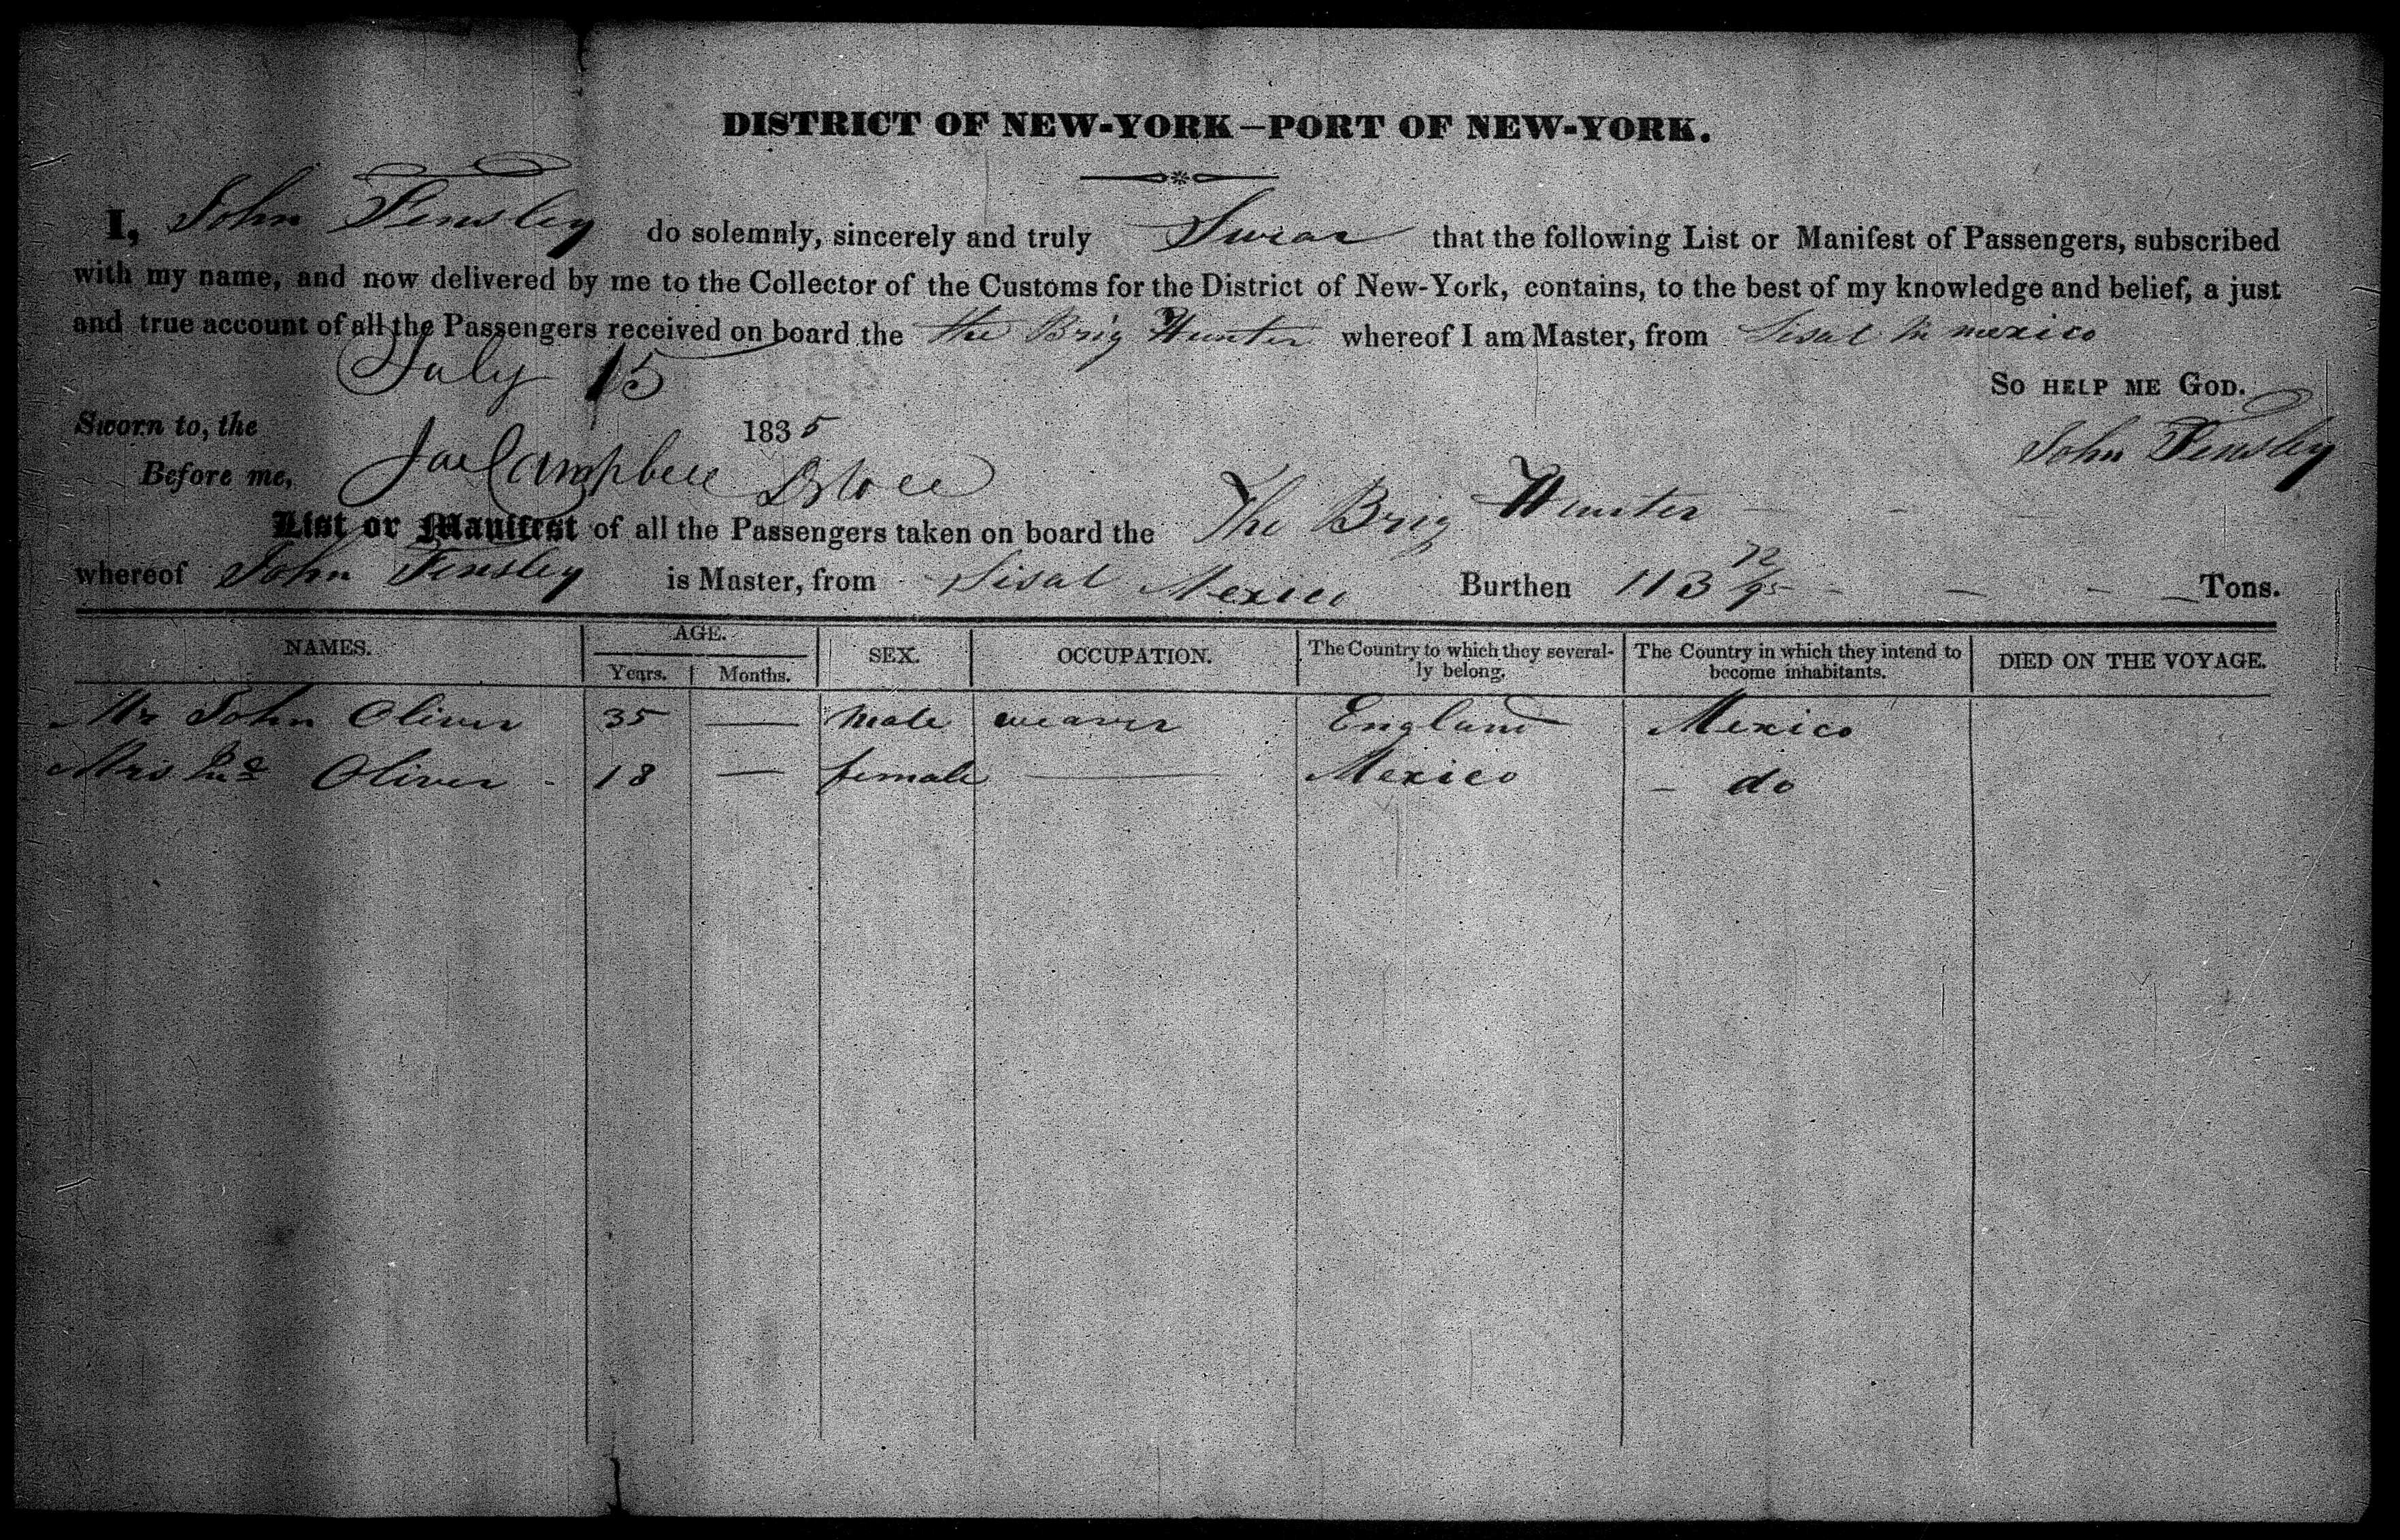 DISTRICT OF NEW-YORK—PORT OF NEW-YORK.
I, John Tensley do solemnly, sincerely and truly Swear that the following List or Manifest of Passengers, subscribed
with my name, and now delivered by me to the Collector of the Customs for the District of New-York, contains, to the best of my knowledge and belief, a just
and true account of all the Passengers received on board the the Brig Hunter whereof I am Master, from Sisal in mexico
July 15
SO HELP ME GOD.
Sworn to, the 1835
John Tensley
Before me, Campbell
List or Manifest of all the Passengers taken on board the The Brig Hunter
whereof John Tensley is Master, from Sisal Mexico Burthen 113 72/95 Tons.
NAMES. AGE. Years. Months. SEX. OCCUPATION. The Country to which they severally belong. The Country in which they intend to become inhabitants. DIED ON THE VOYAGE.
Mr John Oliver 35 — male weaver England Mexico
Mrs Oliver - 18 — female — Mexico - do